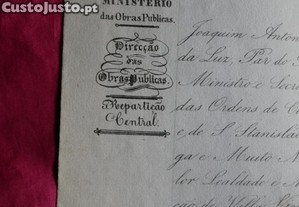 CustoJusto.pt
MINISTERIO
das Obras Publicas.
Direcção
das
Obras Publicas.
Repartição
Central.
Joaquim Anton
da Luz, Par do
Ministro e Secre
das Ordens de C
e de S Stanislao
ga e Muito N
lor Lealdade e
ção de Villa